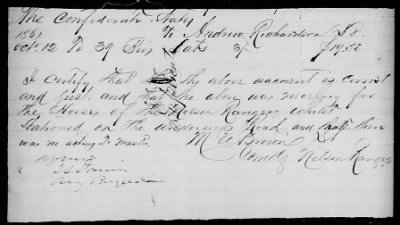 The Confederate States
1861 To Andrew Richardson Dr.
Oct. 12 To 39 Bus Oats 3/- $19.50
I certify that the above account is correct
and just. and that the above was necessary for
the Horses of the Nelson Rangers whilst
Stationed on the Road, and that there
was no acting Qr Master
M
Comdg Nelson Rangers